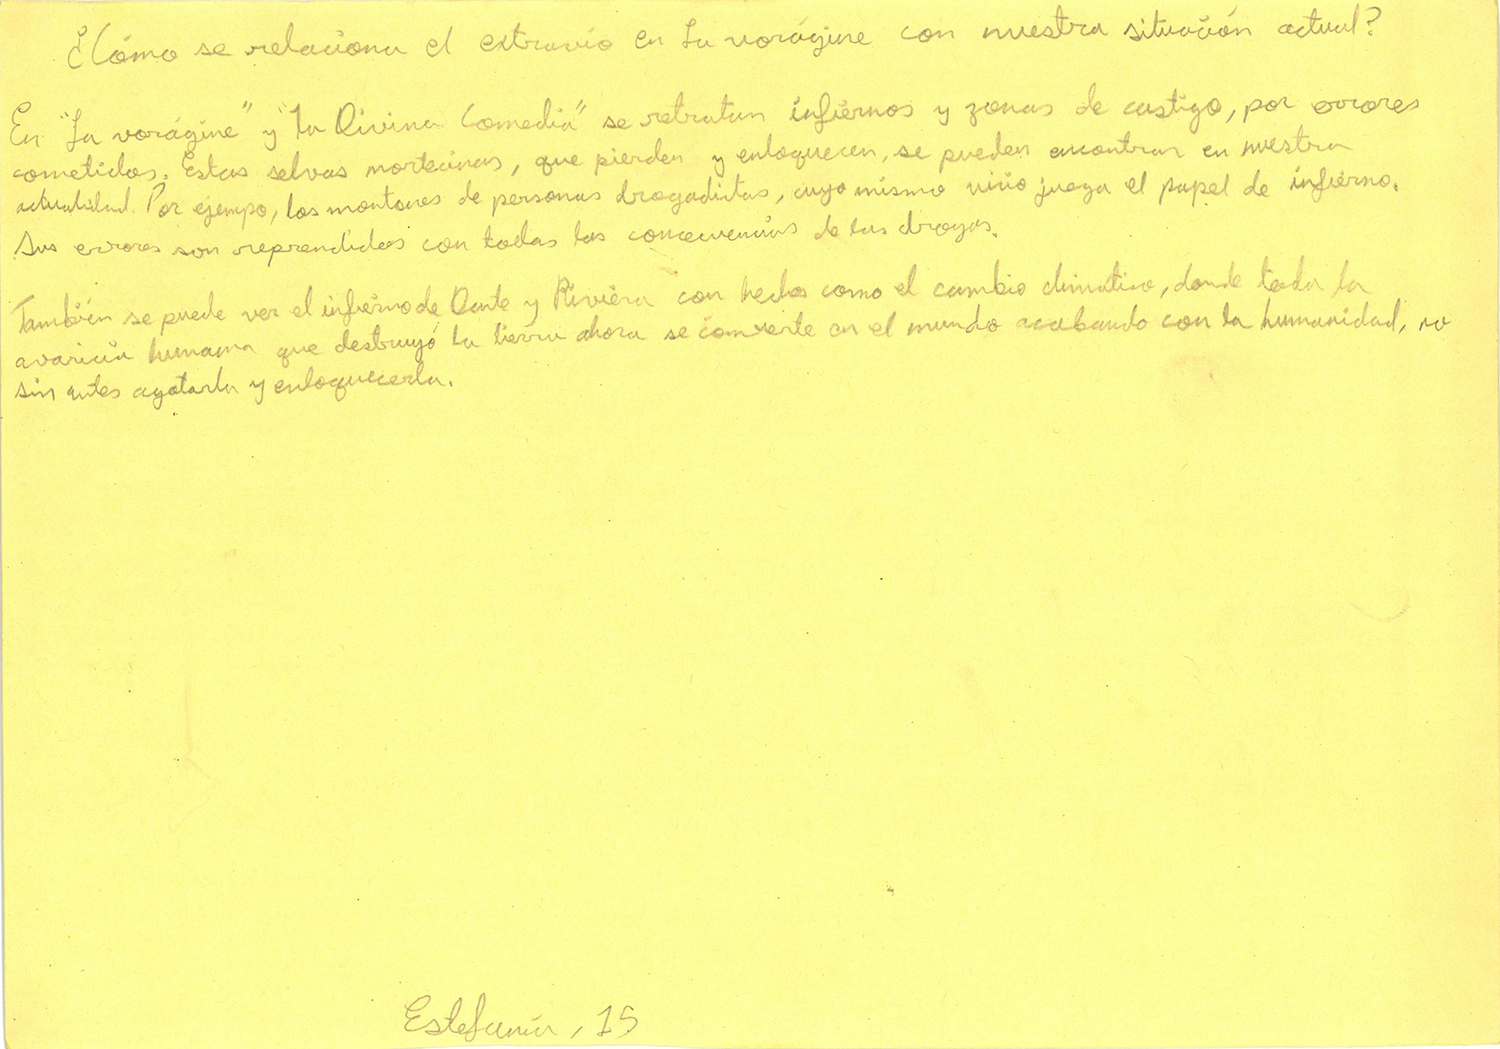 ¿Cómo se relaciona el extravío en La vorágine con nuestra situación actual?
En "La vorágine" y "La Divina Comedia" se retratan infiernos y zonas de castigo, por errores
cometidos. Estas selvas mortecinas, que pierden y enloquecen, se pueden encontrar en nuestra
actualidad. Por ejemplo, los montones de personas drogadictas, cuyo mismo viño juega el papel de infierno.
Sus errores son reprendidos con todas las concecuencias de las drogas.
También se puede ver el infierno de Dante y Riviera con hechos como el cambio climatico, donde toda la
avaricia humana que destruyó la tierra ahora se convierte en el mundo acabando con la humanidad, no
sin antes agotarla y enloquecerla.
Estefanía, 15